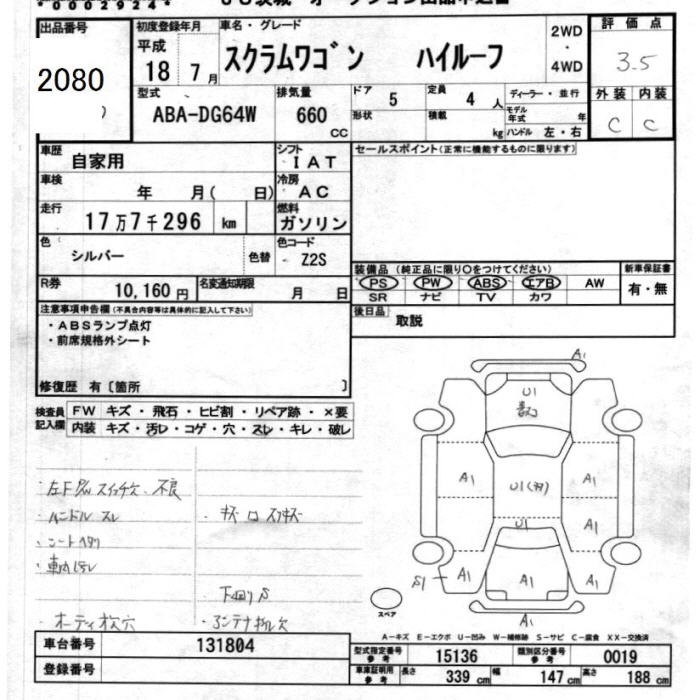 *00002924*
出品番号 初度登録年月 車名・グレード 2WD・4WD 評価点
2080 平成 18 7月 スクラムワゴン ハイルーフ 3.5
型式 ABA-DG64W 排気量 660 CC ドア 5 定員 4人 ディーラー・並行 外装 内装
形状 積載 kg モデル年式 年 ハンドル 左・右 C C
車歴 自家用 シフト IAT セールスポイント(正常に機能するものに限ります)
車検 年 月( 日) 冷房 AC
走行 17万7千296 km 燃料 ガソリン
色 シルバー 色替 色コード Z2S
装備品 (純正品に限り○をつけてください) 新車保証書
PS PW ABS エアB AW 有・無
SR ナビ TV カワ
R券 10,160円 名変通知期限 月 日
後日品 取説
注意事項申告欄(不具合内容等は具体的に記入して下さい)
・ABSランプ点灯
・前席規格外シート
修復歴 有〔箇所 〕
検査員記入欄 FW キズ・飛石・ヒビ割・リペア跡・×要
内装 キズ・汚レ・コゲ・穴・スレ・キレ・破レ
・左F P/W スイッチ欠、不良
・ハンドル スレ
・シートヘタリ
・車内汚レ
・下回りS
・アンテナ
A1
U1
A1 U1 A1
U1 A1
S1 A1 A1 A1
A1
スペア
A-キズ E-エクボ U-凹み W-補修跡 S-サビ C-腐食 XX-交換済
車台番号 131804
登録番号
型式指定番号 参考 15136 類別区分番号 参考 0019
車庫証明用 参考 長さ 339 cm 幅 147 cm 高さ 188 cm